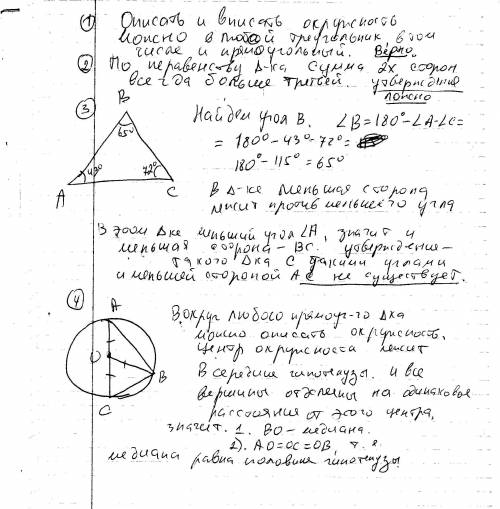 ① Описать и вписать окружность
можно в любой треугольник в том
числе и прямоугольный. Верно.
② По неравенству Δ-ка сумма 2х сторон
всегда больше третьей. утверждение
ложно
③
B
65°
43°
72°
A
C
Найдем угол B. ∠B=180°-∠A-∠C=
= 180°-43°-72°=
180°-115°=65°
В Δ-ке меньшая сторона
лежит против меньшего угла
В этом Δке меньший угол ∠A, значит и
меньшая сторона - BC. утверждение -
такого Δка с такими углами
и меньшей стороной AC не существует.
④
A
O
B
C
Вокруг любого прямоуг-го Δка
можно описать окружность.
Центр окружности лежит
в середине гипотенузы. и все
вершины отдалены на одинаковое
расстояния от этого центра,
значит. 1. BO - медиана.
2). AO=OC=OB, т. е.
медиана равна половине гипотенузы